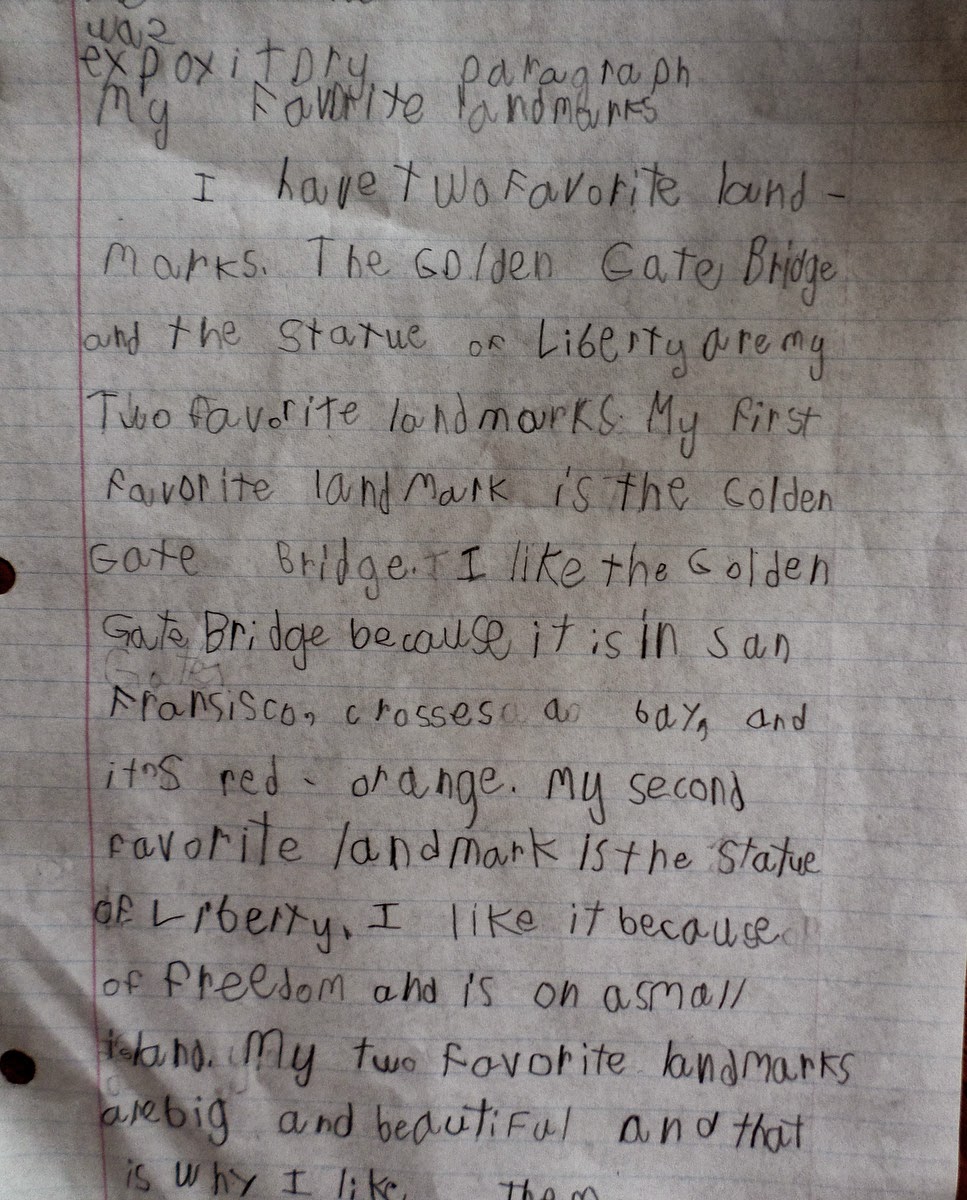 wa2
expoxitory paragraph
My Favorite landmarks
I have two Favorite land -
marks. The Golden Gate Bridge
and the Statue of Liberty are my
Two favorite landmarks. My first
favorite landmark is the Golden
Gate Bridge. I like the Golden
Gate Bridge because it is in San
Fransisco, crosses a bay, and
it's red - orange. My second
favorite landmark is the Statue
of Liberty. I like it because
of freedom and is on a small
island. My two favorite landmarks
are big and beautiful and that
is why I like them